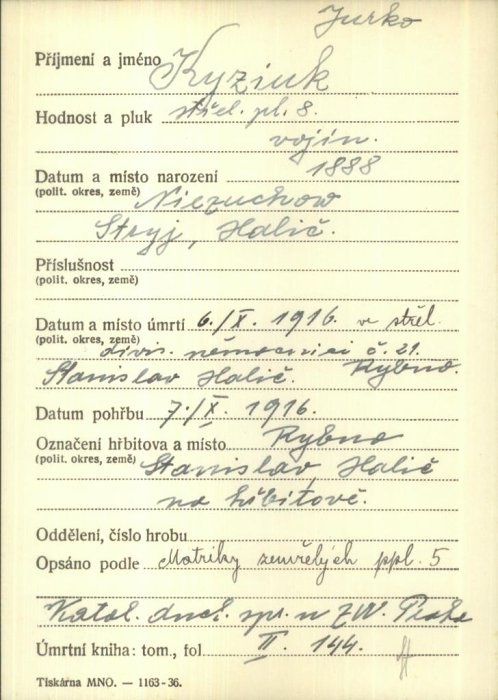 Jurko
Příjmení a jméno Kyziuk
Hodnost a pluk střel. pl. 8.
vojín.
Datum a místo narození 1888
(polit. okres, země) Niezuchow
Stryj, Halič.
Příslušnost
(polit. okres, země)
Datum a místo úmrtí 6./X. 1916. v střel.
(polit. okres, země) divis. nemocnici č. 21.
Stanislav Halič. Rybno.
Datum pohřbu 7./X. 1916.
Označení hřbitova a místo Rybno
(polit. okres, země) Stanislav, Halič
na hřbitově.
Oddělení, číslo hrobu
Opsáno podle Matriky zemřelých ppl. 5
Katol. duch. spr. u ZVV. Praha
Úmrtní kniha: tom., fol. II. 144.
Tiskárna MNO. — 1163-36.